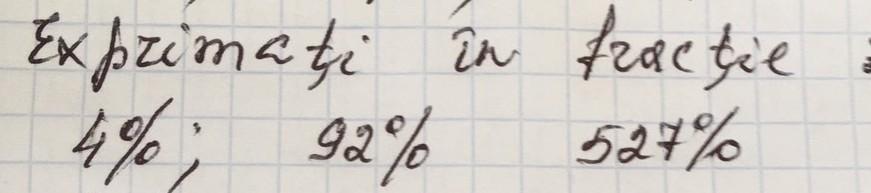 Exprimați în fracție :
4%; 92% 527%